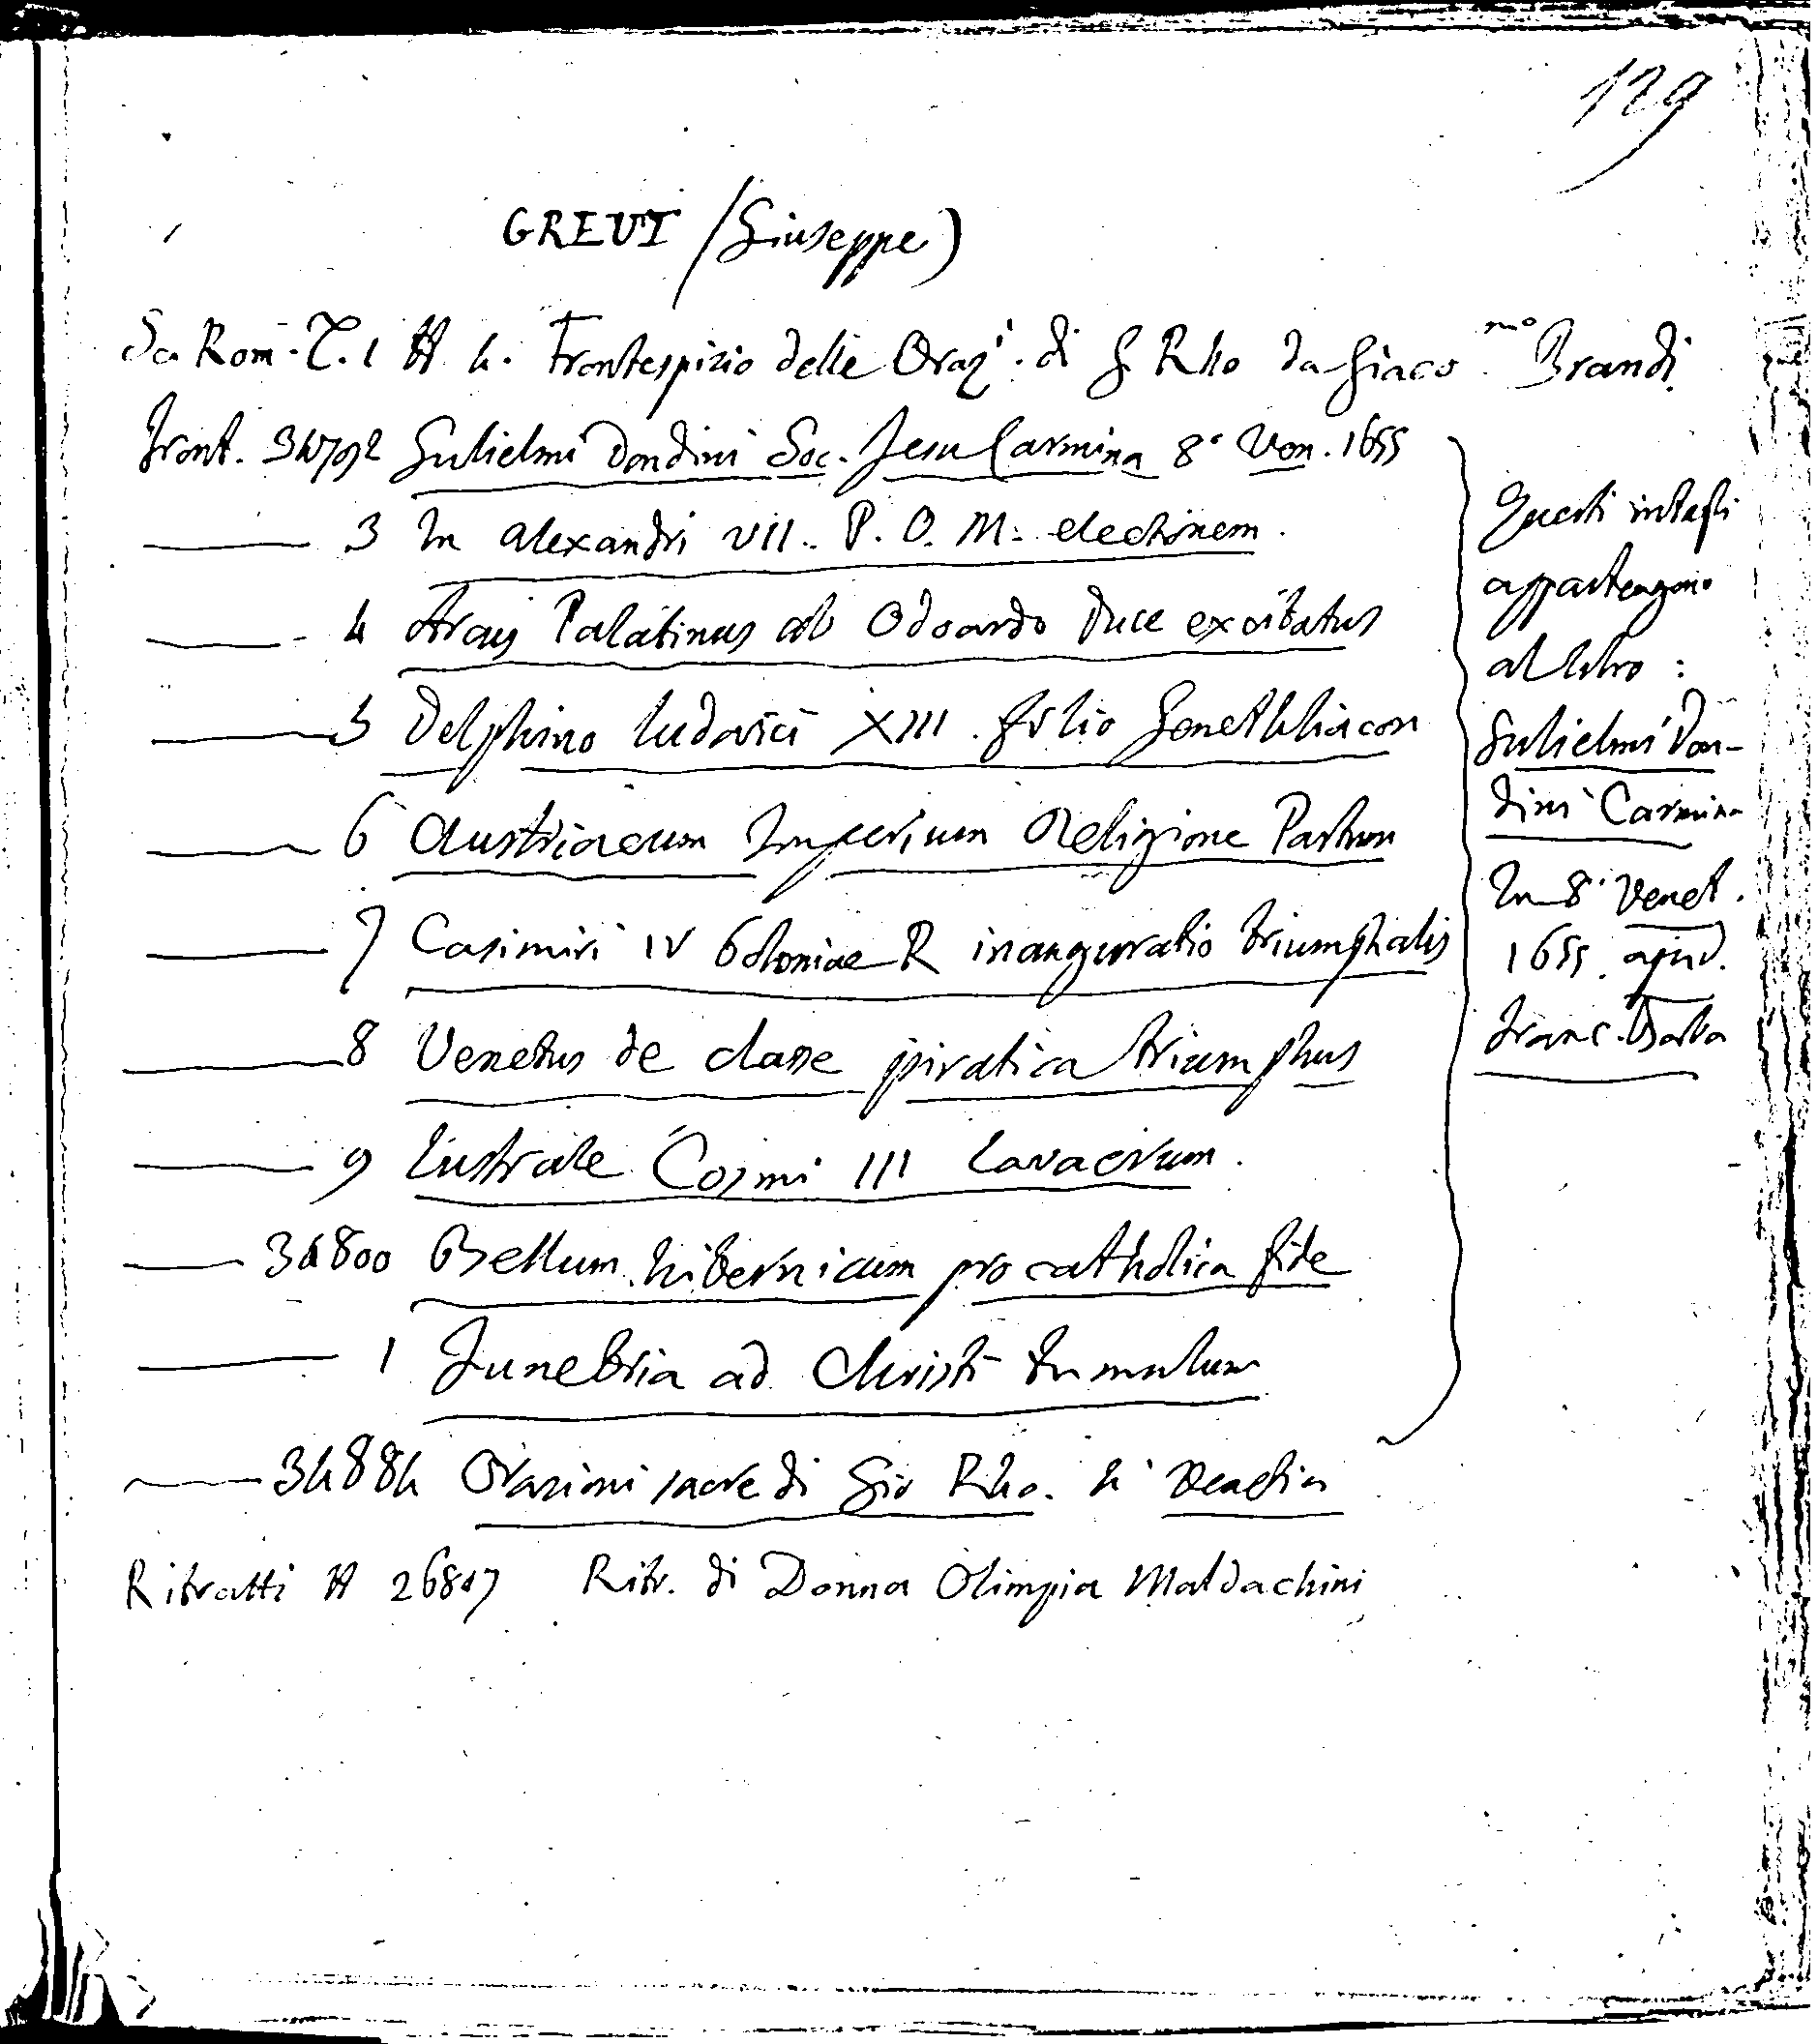 129
GREUT (Giuseppe)
Sc. Rom. T. 1 # 4. Frontespizio delle Oraz.i di G. Rho da Giaco.mo Brandi
Front. 34792 Gulielmi Dondini Soc. Jesu Carmina 8° Ven. 1655
3 In Alexandri VII. P. O. M. electionem.
4 Arcus Palatinus ab Odoardo Duce excitatus
5 Delphino Ludovici XIII. filio Genethliacon
6 Austriacum Imperium Religione Partum
7 Casimiri IV Poloniae R inauguratio triumphalis
8 Venetus de classe piratica triumphus
9 Lustrale Cosmi III Lavacrum.
34800 Bellum hibernicum pro catholica fide
1 Funebria ad Christi tumulum
34884 Orazioni sacre di Gio Rho. 4° Venetia
Ritratti # 26817 Ritr. di Donna Olimpia Maldachini
Questi intagli
appartengono
al libro :
Gulielmi Don-
dini Carmina
In 8° Venet.
1655. apud.
Franc. Baba